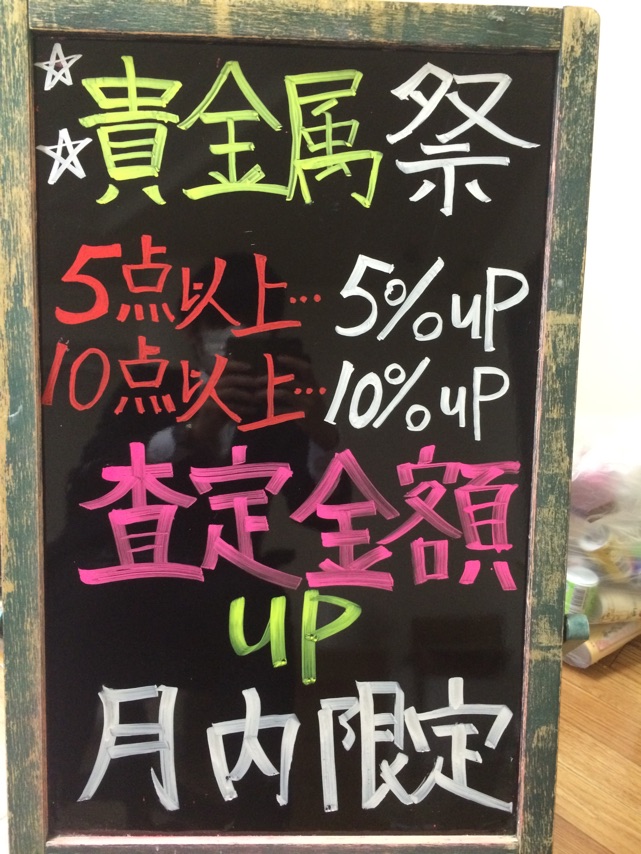 ☆貴金属祭
☆
5点以上…5%UP
10点以上…10%UP
査定金額
UP
月内限定